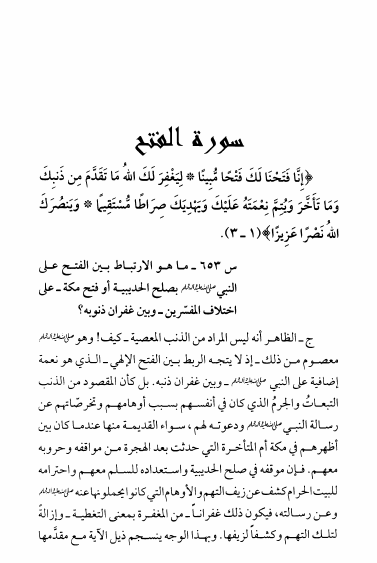 سورة الفتح
﴿إِنَّا فَتَحْنَا لَكَ فَتْحًا مُّبِينًا * لِيَغْفِرَ لَكَ اللهُ مَا تَقَدَّمَ مِن ذَنبِكَ
وَمَا تَأَخَّرَ وَيُتِمَّ نِعْمَتَهُ عَلَيْكَ وَيَهْدِيَكَ صِرَاطًا مُّسْتَقِيمًا * وَيَنصُرَكَ
اللهُ نَصْرًا عَزِيزًا﴾(١ ـ ٣).
س ٦٥٣ ـ ما هو الارتباط بين الفتح على
النبي بصلح الحديبية أو فتح مكة ـ على
اختلاف المفسّرين ـ وبين غفران ذنوبه؟
ج ـ الظاهر أنه ليس المراد من الذنب المعصية ـ كيف! وهو
معصوم من ذلك ـ إذ لا يتجه الربط بين الفتح الإلهي ـ الذي هو نعمة
إضافية على النبي ـ وبين غفران ذنبه. بل كأن المقصود من الذنب
التبعاتُ والجرمُ الذي كان في أنفسهم بسبب أوهامهم وتخرصاتهم عن
رسالة النبي ودعوته لهم، سواء القديمة منها عندما كان بين
أظهرهم في مكة أم المتأخرة التي حدثت بعد الهجرة من مواقفه وحروبه
معهم. فإن موقفه في صلح الحديبية واستعداده للسلم معهم واحترامه
للبيت الحرام كشف عن زيف التهم والأوهام التي كانوا يحملونها عنه
وعن رسالته، فيكون ذلك غفراناً ـ من المغفرة بمعنى التغطية ـ وإزالةً
لتلك التهم وكشفاً لزيفها. وبهذا الوجه ينسجم ذيل الآية مع مقدَّمها